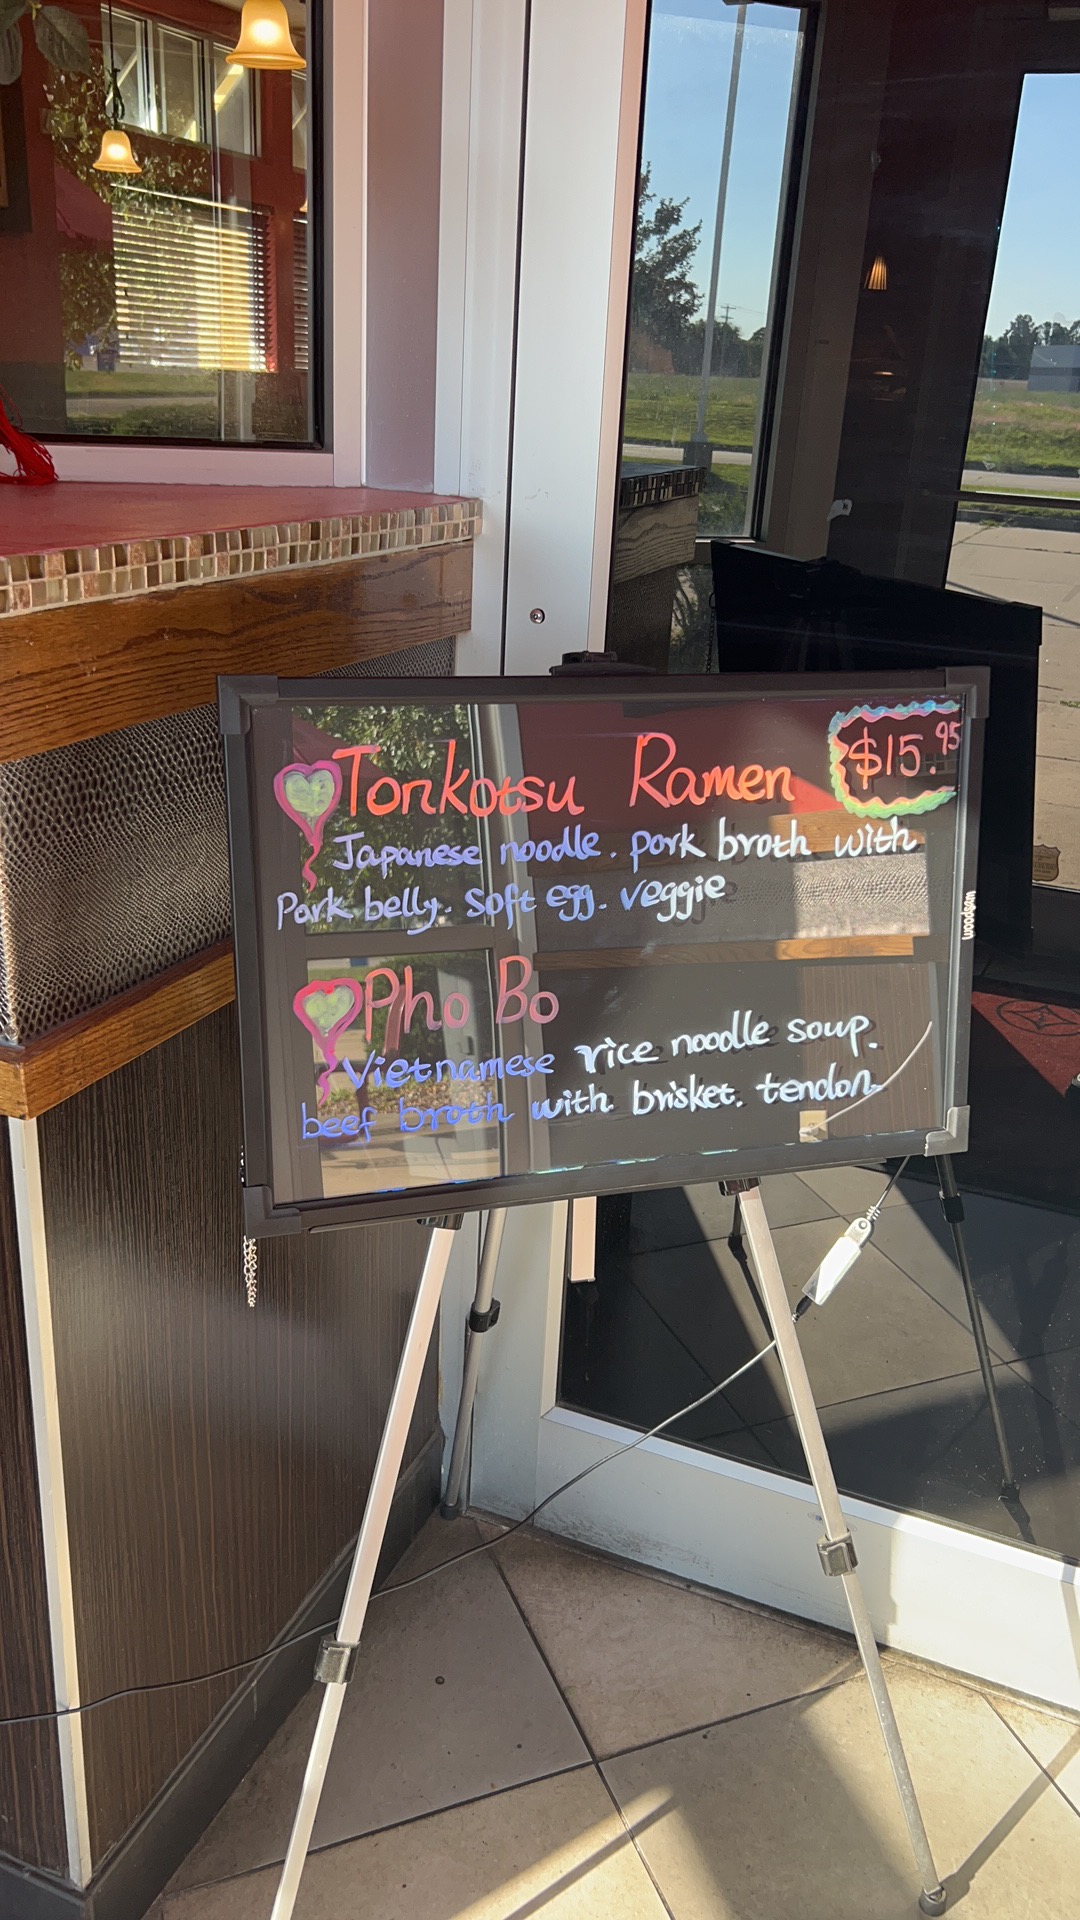 Tonkotsu Ramen $15.95
Japanese noodle. pork broth with
Pork belly. Soft egg. veggie
Pho Bo
Vietnamese rice noodle soup.
beef broth with brisket. tendon
woodsam